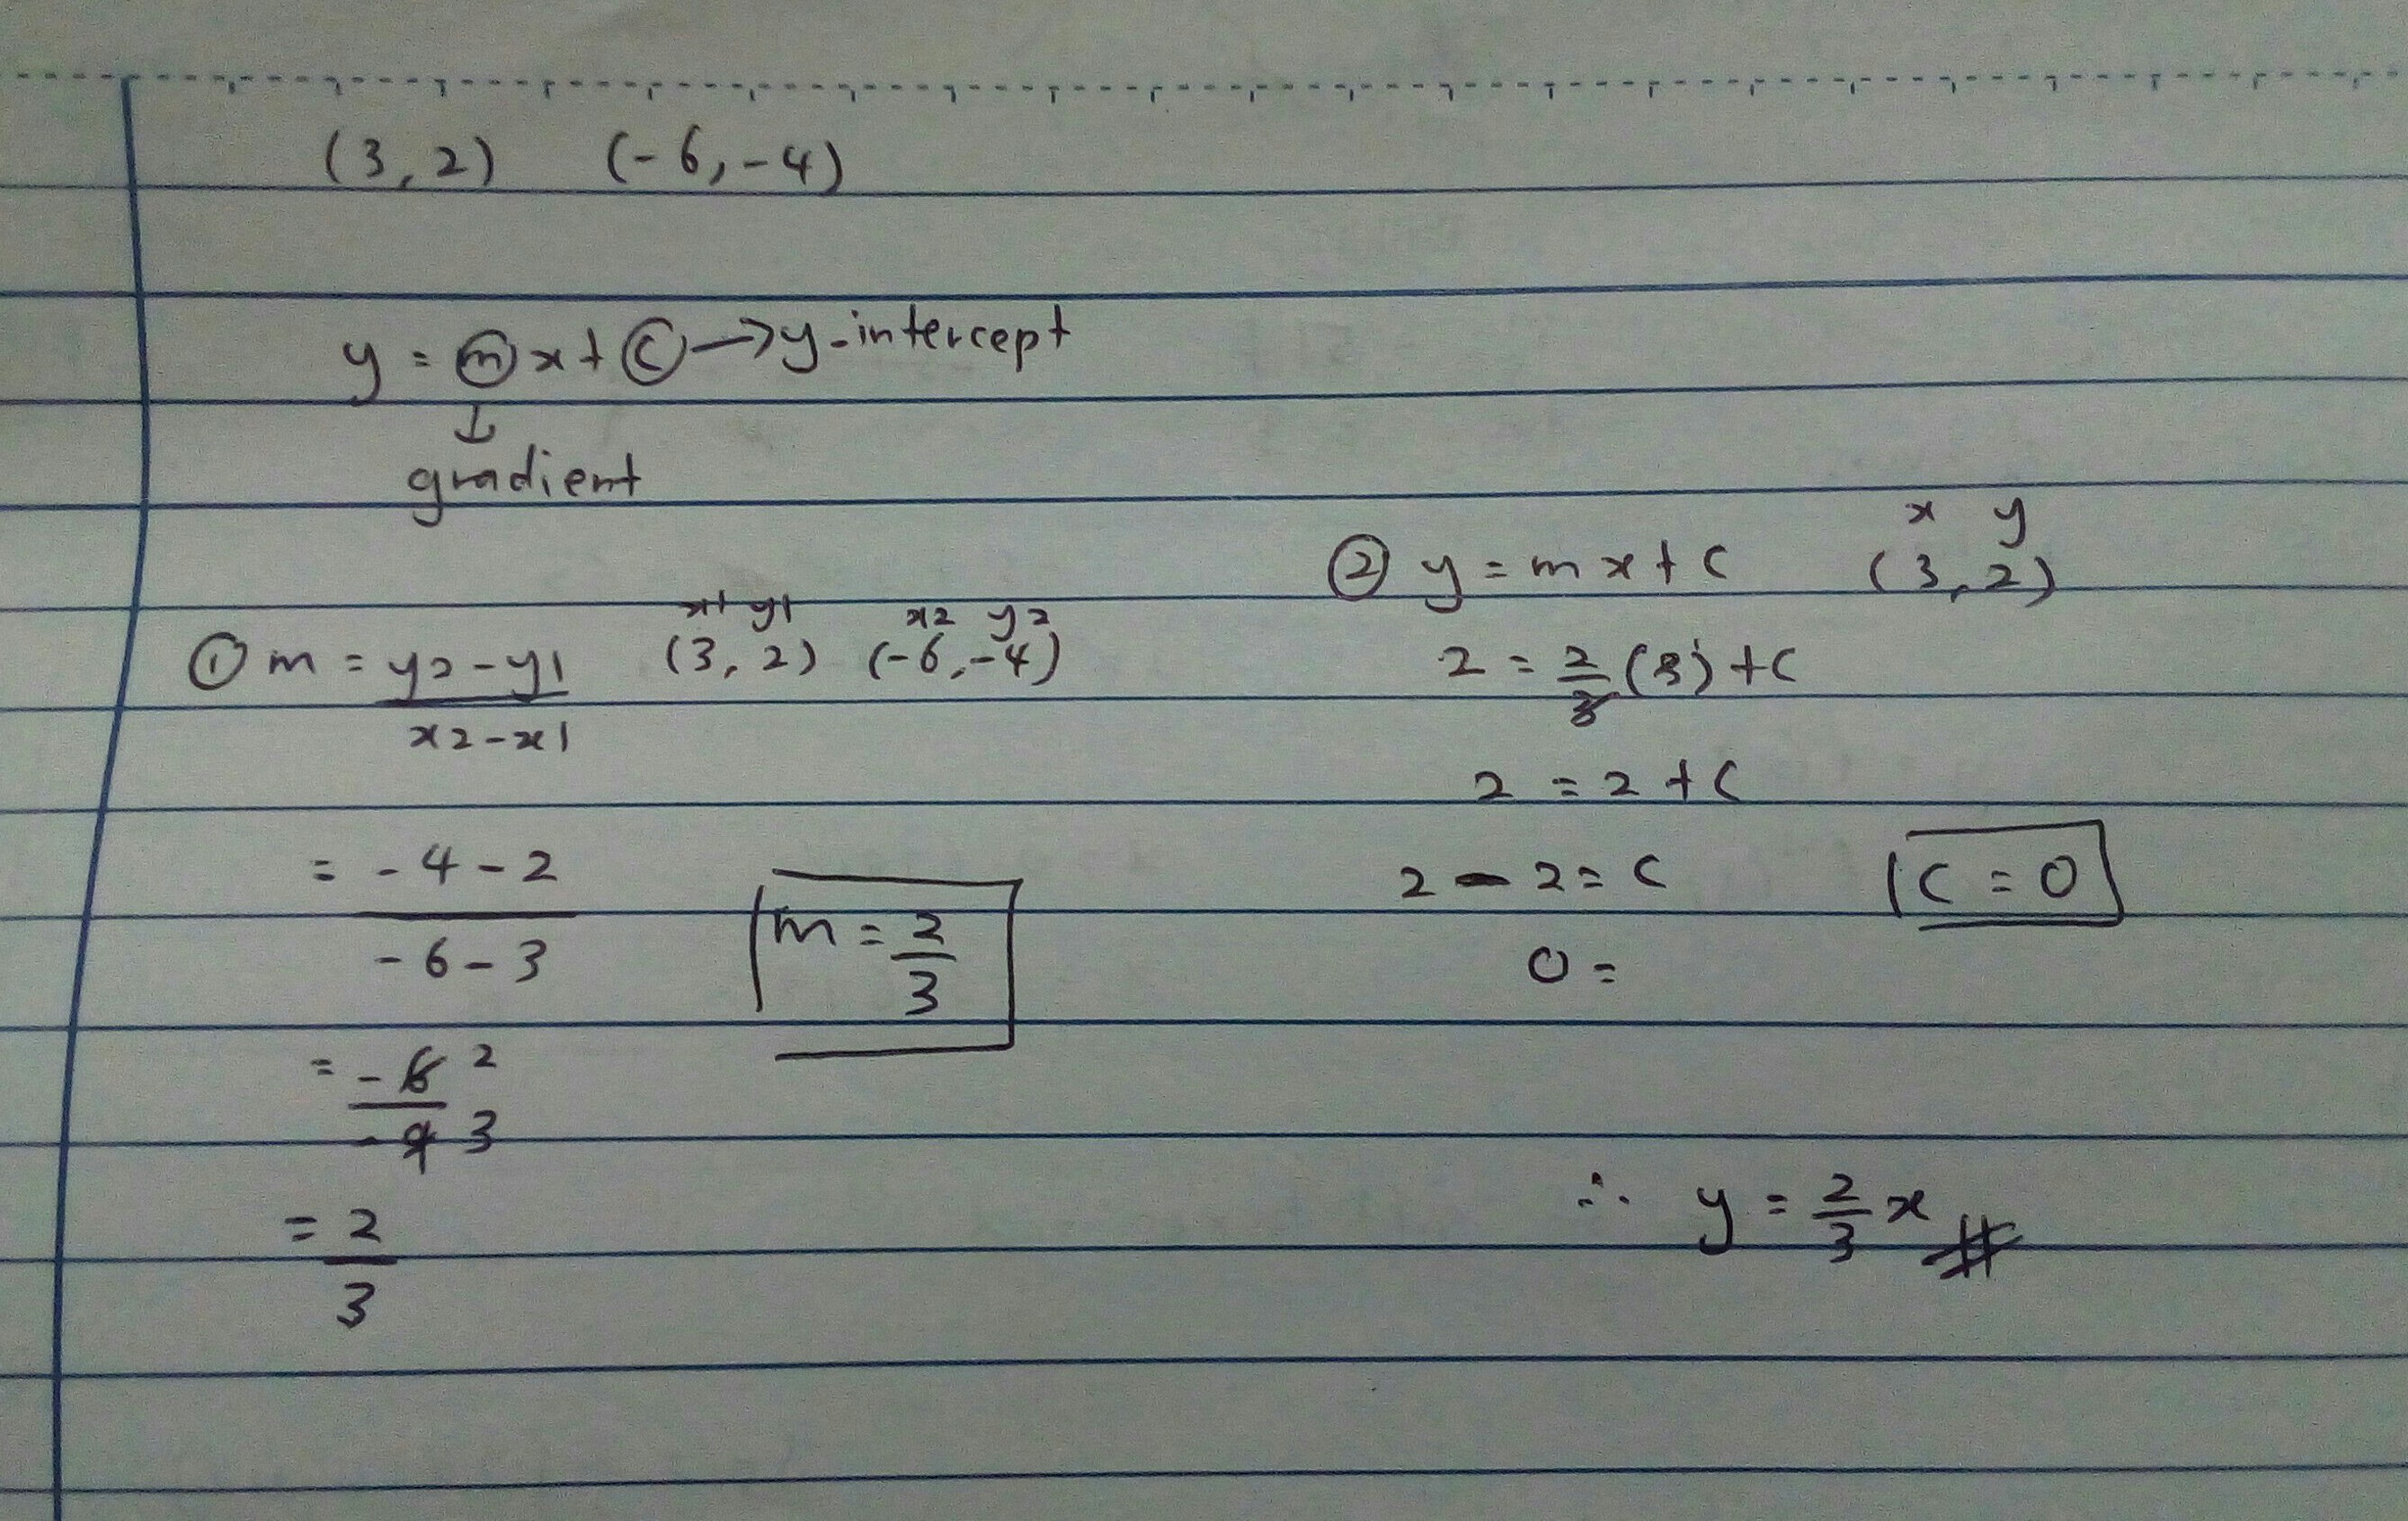 (3, 2) (-6, -4)
y = m x + c → y-intercept
↓
gradient
① m = y2 - y1
x2 - x1
x1 y1 x2 y2
(3, 2) (-6, -4)
= -4 - 2
-6 - 3
m = 2
3
= -6 2
-9 3
= 2
3
② y = mx + c
x y
(3, 2)
2 = 2 (3) + c
3
2 = 2 + c
2 - 2 = c
c = 0
0 =
∴ y = 2 x
3